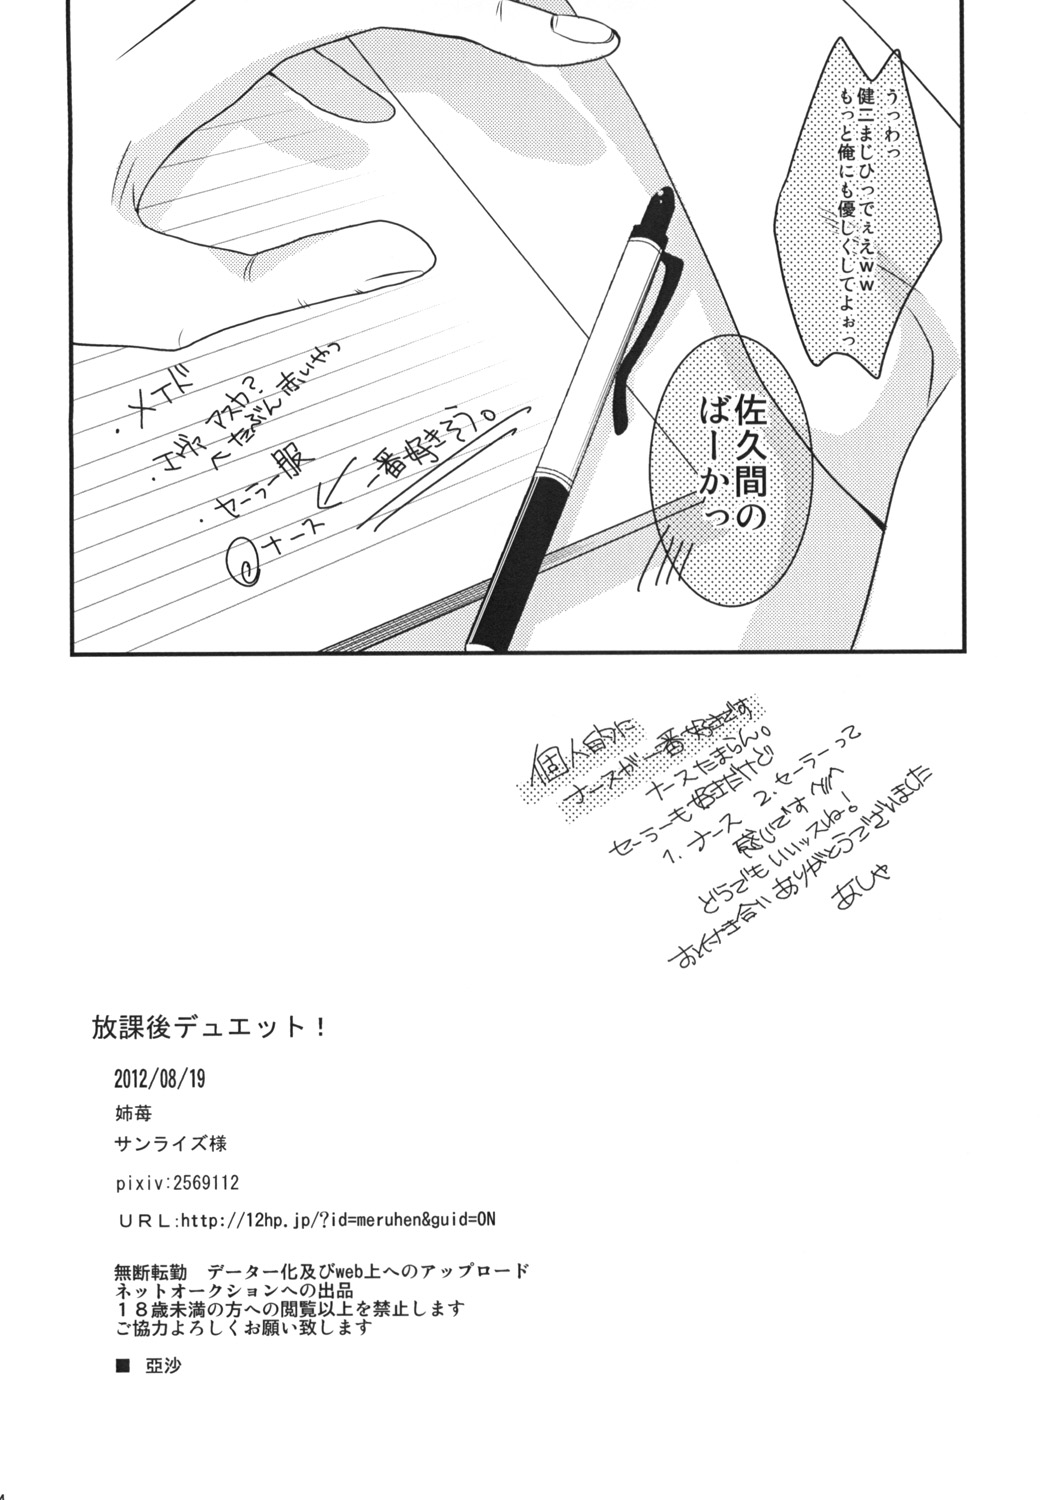 うっわっ
健二まじひってぇえｗｗ
もっと俺にも優しくしてよぉっ
佐久間の
ばーかっ
・メイド
・エヴァ アスカ?
↖たぶん赤いやつ
・セーラー服
ナース ← 一番好きそう。
個人的に
ナースが一番好きです
ナースたまらん。
セーラーも好きだけど
1. ナース 2. セーラーって
感じです
どうでもいいッスね!
お付き合いありがとうございました
あしゃ
放課後デュエット！
2012/08/19
姉苺
サンライズ様
pixiv:2569112
ＵＲＬ:http://12hp.jp/?id=meruhen&guid=ON
無断転勤　データー化及びweb上へのアップロード
ネットオークションへの出品
１８歳未満の方への閲覧以上を禁止します
ご協力よろしくお願い致します
■　亞沙